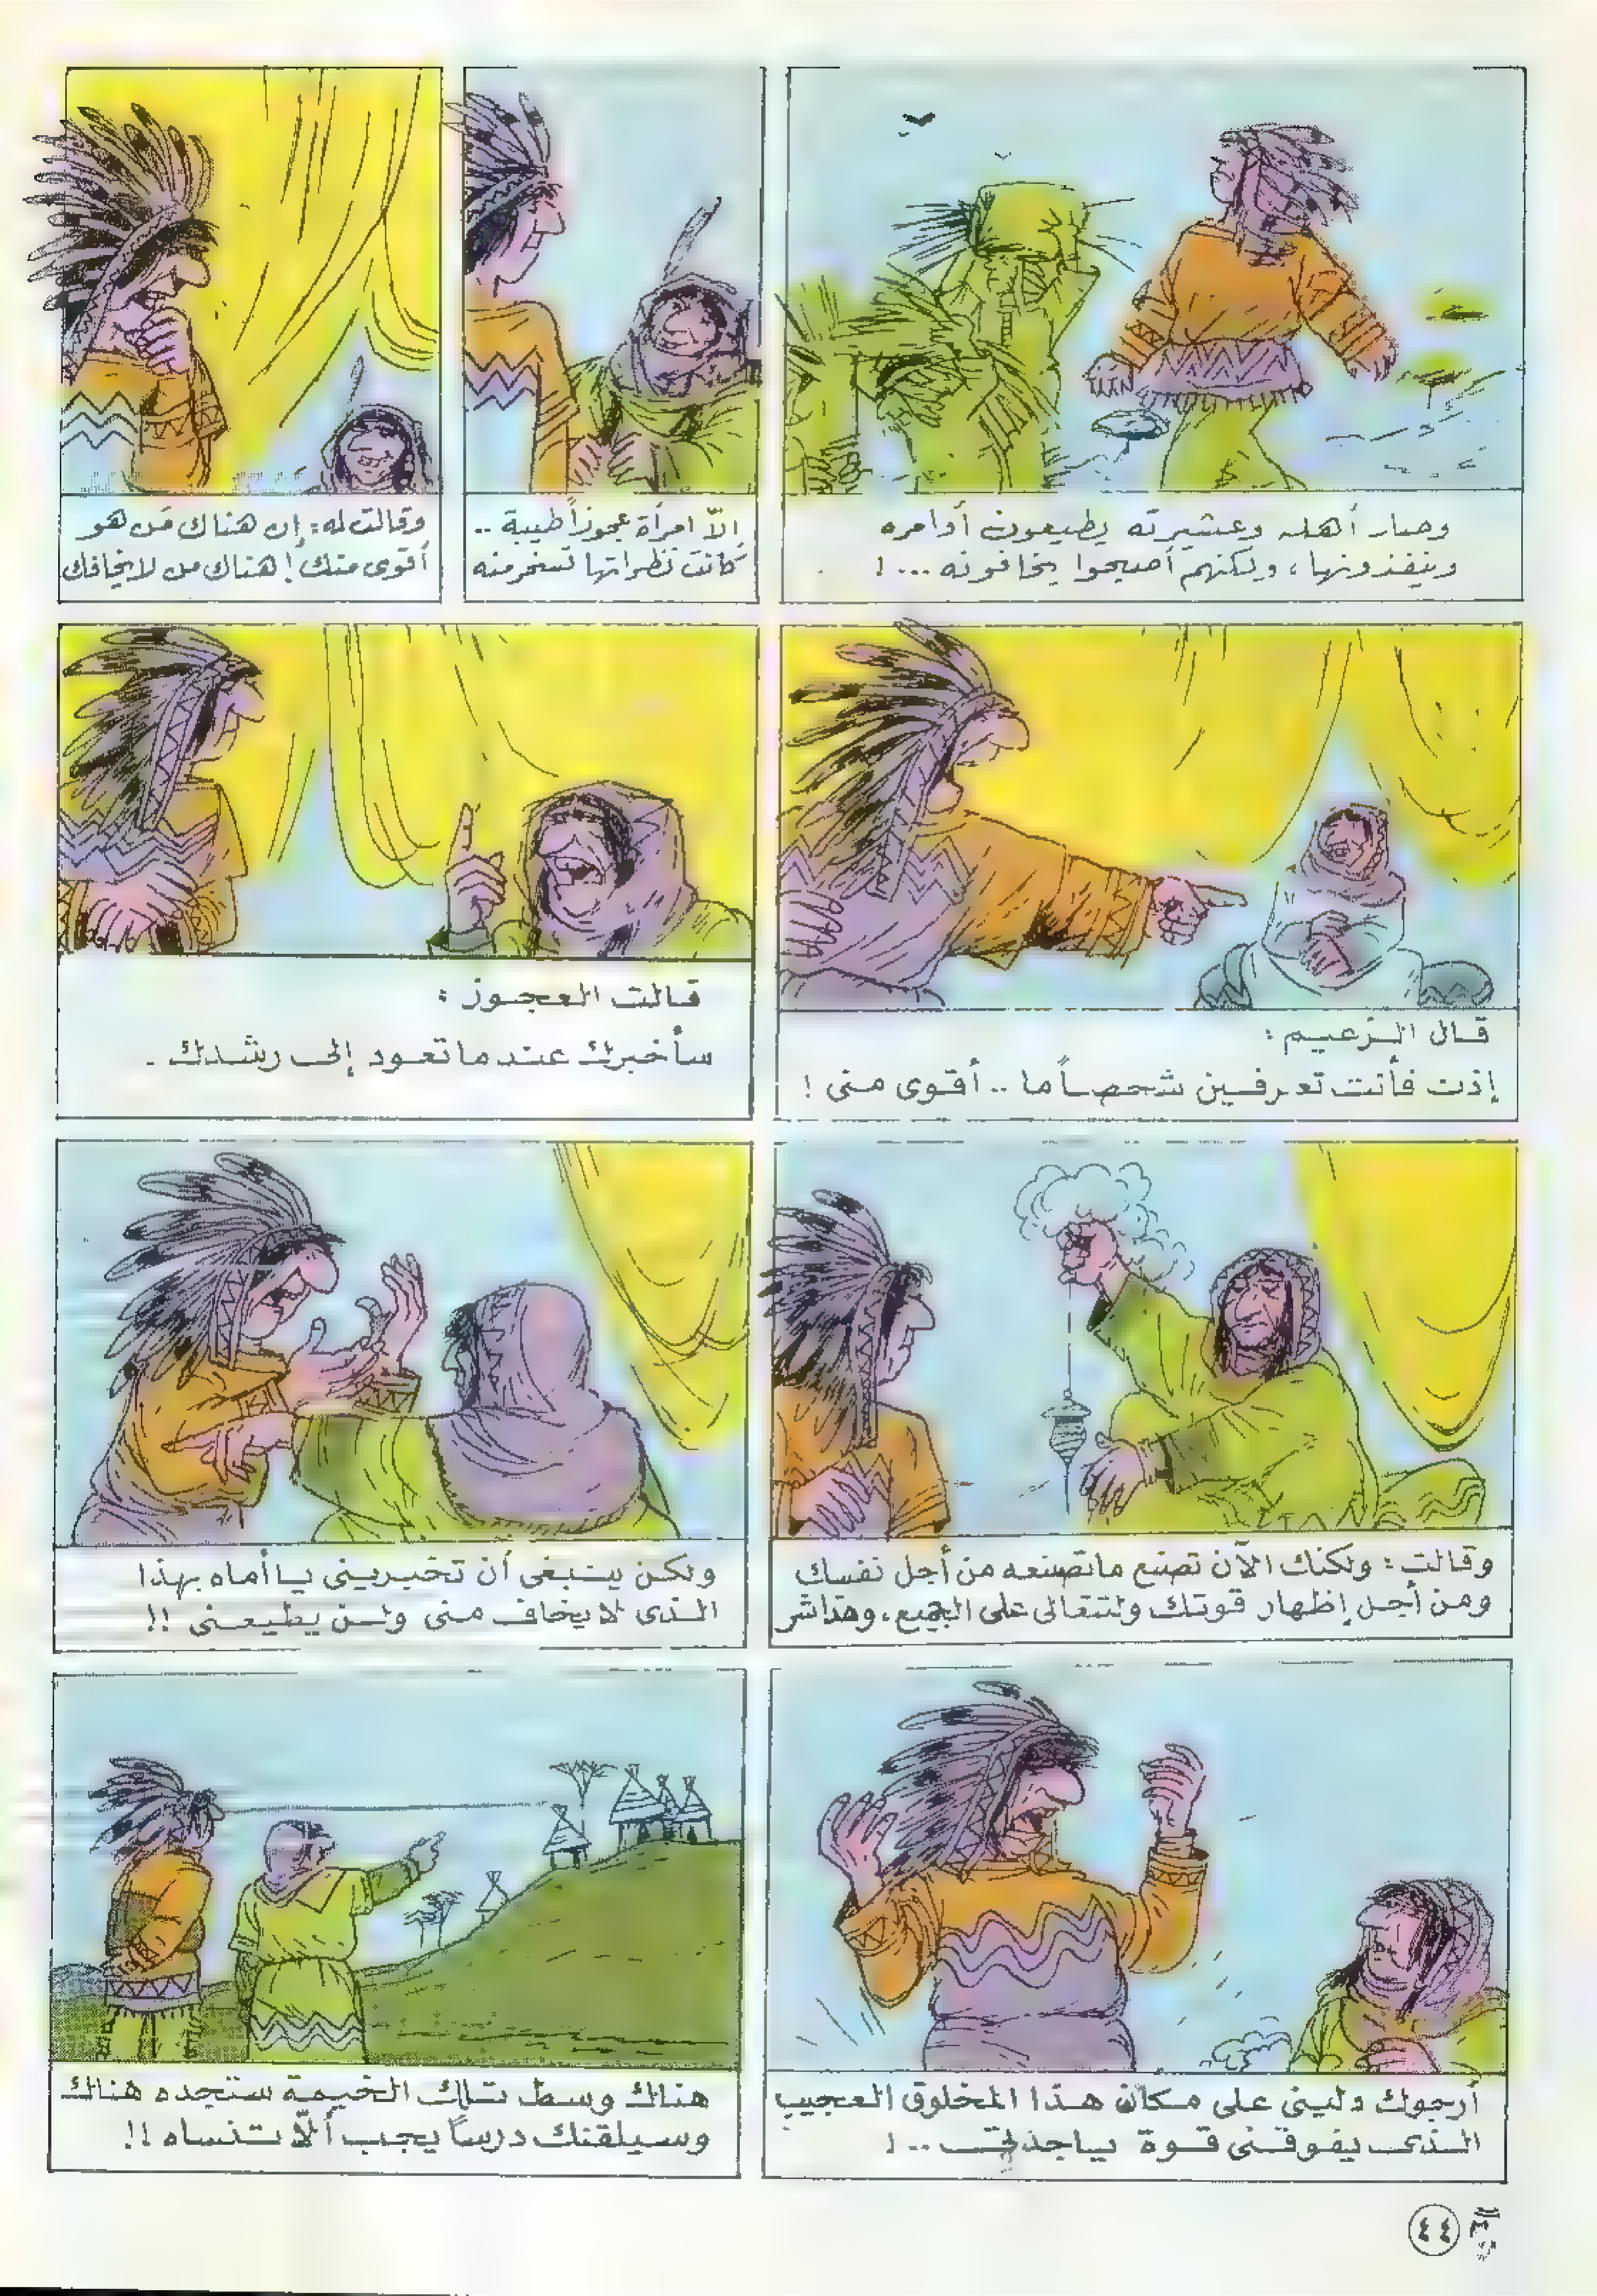 وصار أهله وعشيرته يطيعون أوامره
وينفذونها، ولكنهم أصبحوا يخافونه ... !
إلاّ امرأة عجوزاً طيبة ..
كانت نظراتها تسخر منه
وقالت له: إن هناك مَن هو
أقوى منك! هناك من لا يخافك
قال الزعيم :
إذن فأنت تعرفين شخصاً ما .. أقوى منى !
قالت العجوز :
سأخبرك عندما تعود إلى رشدك .
وقالت: ولكنك الآن تصنع ما تصنعه من أجل نفسك
ومن أجل إظهار قوتك ولتتعالى على الجميع، وهذا شر
ولكن ينبغى أن تخبرينى يا أماه بهذا
الذى لا يخاف منى ولن يطيعنى !!
أرجوك دلينى على مكان هذا المخلوق العجيب
الذى يفوقنى قوة يا جدتى .. !
هناك وسط تلك الخيمة ستجده هناك
وسيلقنك درساً يجب ألاّ تنساه !!
٤٤